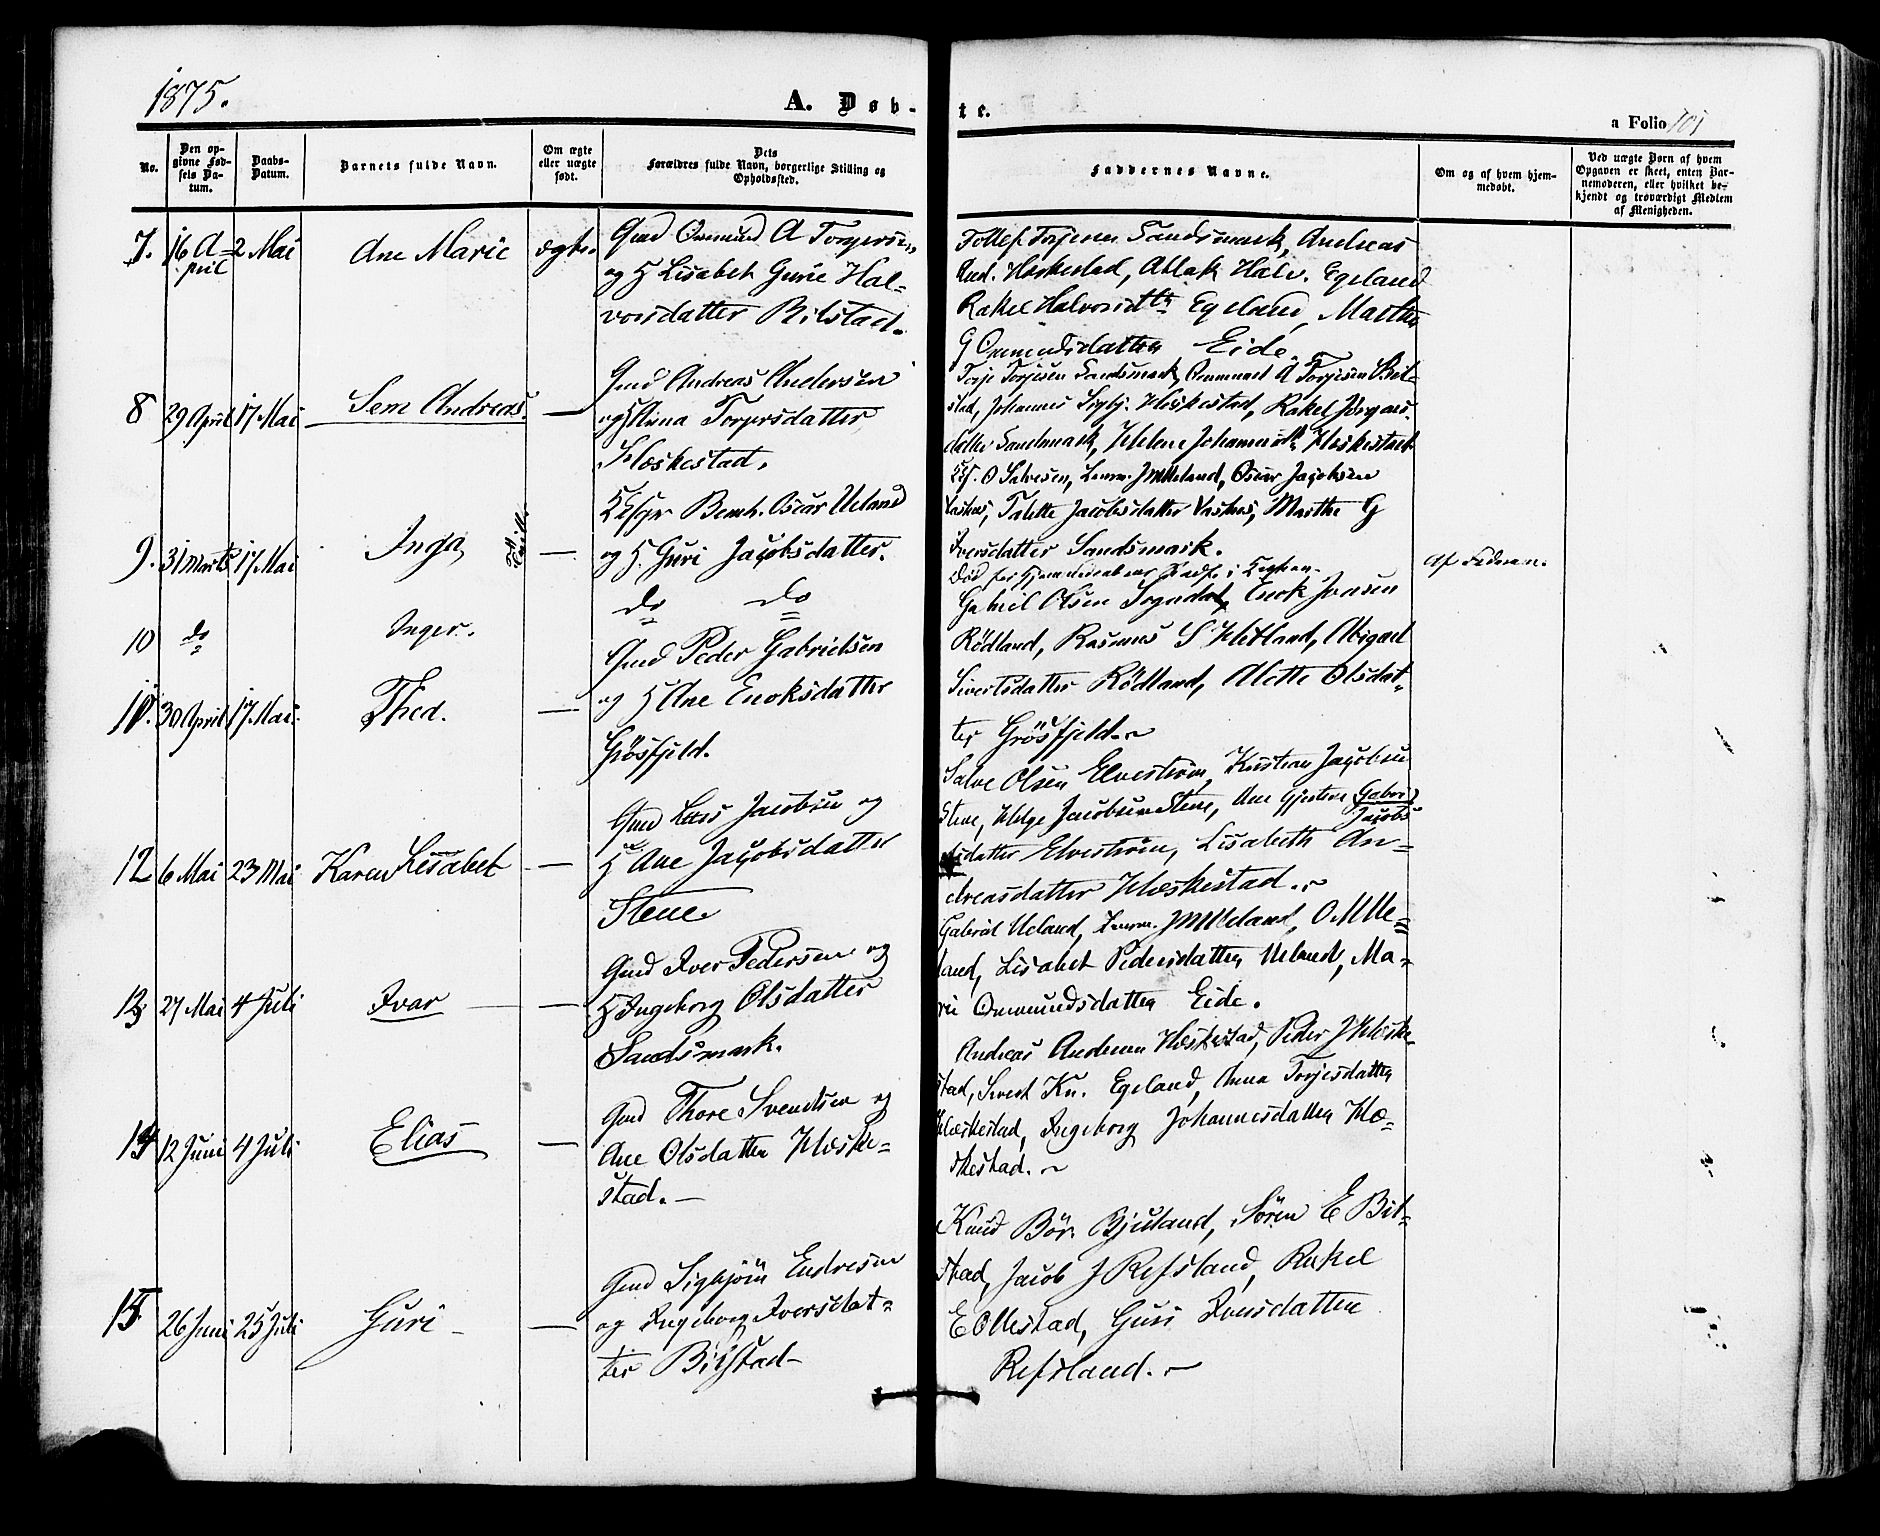 1875.
A. Døb-
te.
a Folio 101
No.
Den op-
givne Fød-
sels Da-
tum.
Daabs-
Datum.
Barnets fulde Navn.
Om ægte
eller uægte
født.
Dets
Forældres fulde Navn, borgerlige Stilling og
Opholdssted.
Faddernes Navne.
Om og af hvem hjem-
medøbt.
Ved uægte Børn af hvem
Opgaven er skeet, enten Bar-
nemoderen, eller hvilket be-
kjendt og troværdigt Medlem
af Menigheden.
7. 16 A=
pril
2 Mai
Ane Marie
ægte
Gmd Ommund A Torgersen
og H Lisabet Gurie Hal=
vorsdatter Bilstad.
Tollef Torjesen Sandsmark, Andreas
And. Hæskestad, Atlak Halv. Egeland
Rakel Halvorsdtr Egeland, Marthe
G Ommundsdatter Eide.
8 29 April 17 Mai
Sem Andreas.
Gmd Andreas Andersen
og H Anna Torgersdatter
Hæskestad.
Torje Torjesen Sandsmark, Ommund A Torjesen Bil-
stad, Johannes Sigbj. Hæskestad, Rakel
datter Sandsmark, Helene Johannesdtr Hæskestad
9. 31 Marts 17 Mai
Inga
Kfsgr Bernh. Oscar Ueland
og H. Guri Jacobsdatter.
O Salvesen, Lensm. J M Ueland, Oscar Jacobsen
Talette Jacobsdatter Vashus, Marthe G
Iversdatter Sandsmark.
Af Faderen.
10 do
Inger.
do do
11. 30 April 17 Mai.
Thed.
Gmd Peder Gabrielsen
og H Ane Enoksdatter
Grøsfjeld.
Gabriel Olsen Sogndal, Enok Jonsen
Rødland, Rasmus S Hetland, Abigael
Sivertsdatter Rødland, Alette Olsdat-
ter Grøsfjeld.
12 6 Mai 23 Mai
Karen Lisabet
Gmd Lars Jacobsen og
H Ane Jacobsdatter
Stene
Salve Olsen Elvestrøm, Kristian Jacobsen
Stene, Helge Jacobsen Stene, Ane Gjertine Gabri
Jacobs
datter Elvestrøm, Lisabeth An-
dreasdatter Hæskestad.
13 27 Mai 4 Juli
Ivar
Gmd Iver Pedersen og
H Ingeborg Olsdatter
Sandsmark.
Gabriel Ueland, Lensm. J M Ueland, O M Ue=
land, Lisabet Pedersdatter Ueland, Ma-
ri Ommundsdatter Eide.
14 12 Juni 4 Juli
Elias
Gmd Thore Svendsen og
Ane Olsdatter Hæske=
stad.
Andreas Andersen Hæskestad, Peder J Hæske-
stad, Sivert Kn. Egeland, Anna Torjesdatter
Hæskestad, Ingeborg Johannesdatter Hæ-
skestad.
15 26 Juni 25 Juli
Guri
Gmd Sigbjörn Endresen
og Ingeborg Iversdat=
ter Bilstad
Knud Bör. Bjuland, Sören E Bil-
stad, Jacob J Refsland, Rakel
E Ollestad, Guri Iversdatter
Refsland.